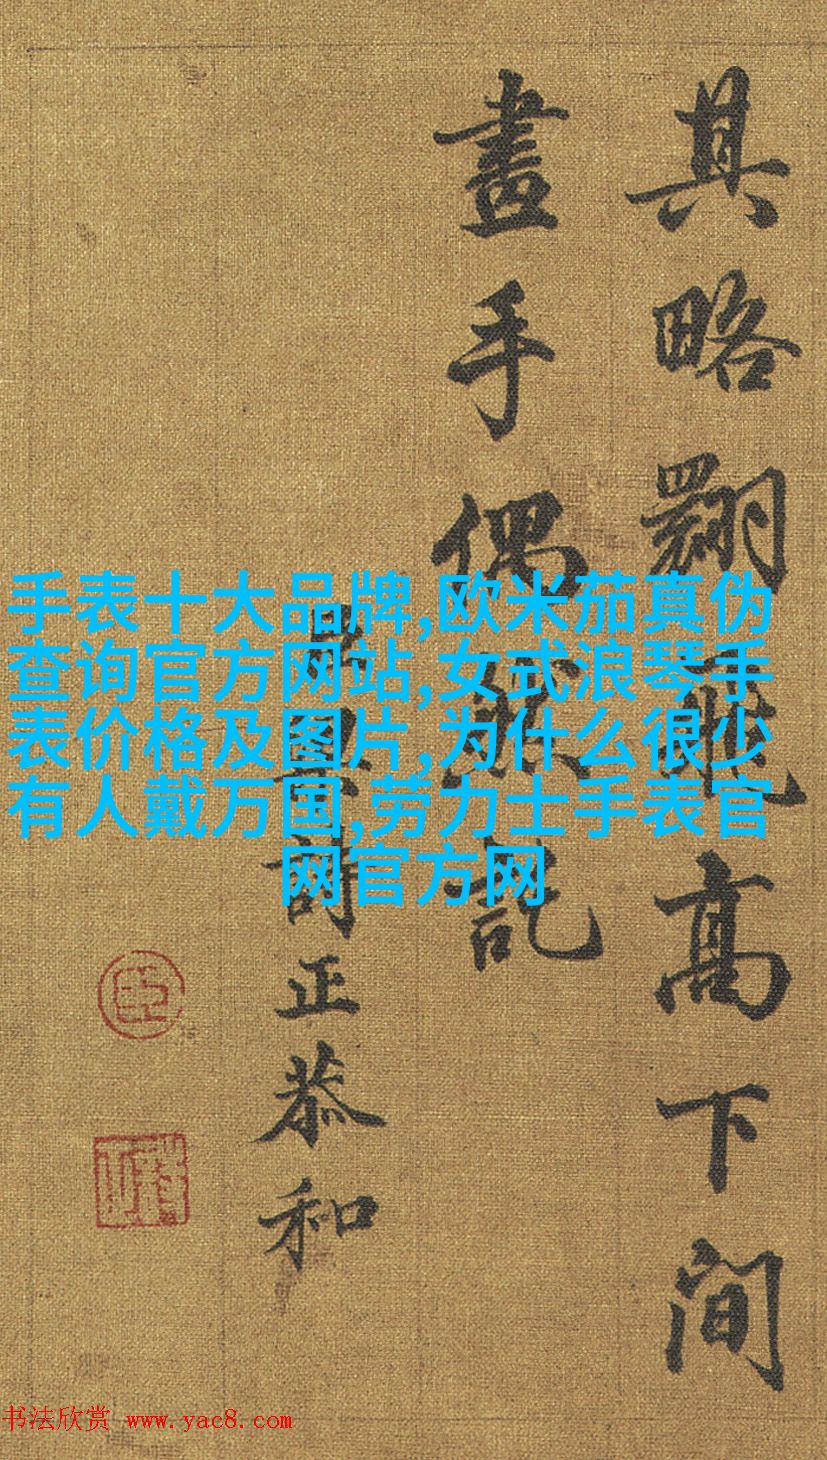 其略翾飛高下間
畫手偶然託
詩正恭和
臣
手表十大品牌,欧米茄真伪
查询官方网站,女式浪琴手
表价格及图片,为什么很少
有人戴万国,劳力士手表官
网官方网
书法欣赏 www.yac8.com